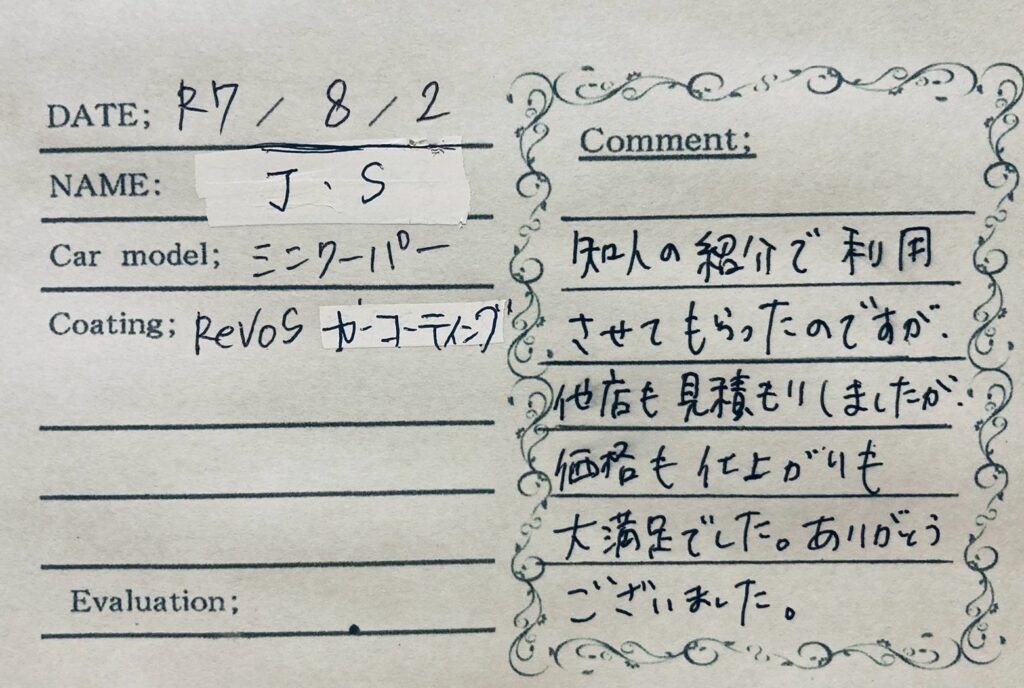 DATE; R7 / 8 / 2
NAME: J・S
Car model; ミニクーパー
Coating; ReVoS ガーコーティング
Evaluation;
Comment;
知人の紹介で利用
させてもらったのですが、
他店も見積もりしましたが、
価格も仕上がりも
大満足でした。ありがとう
ございました。